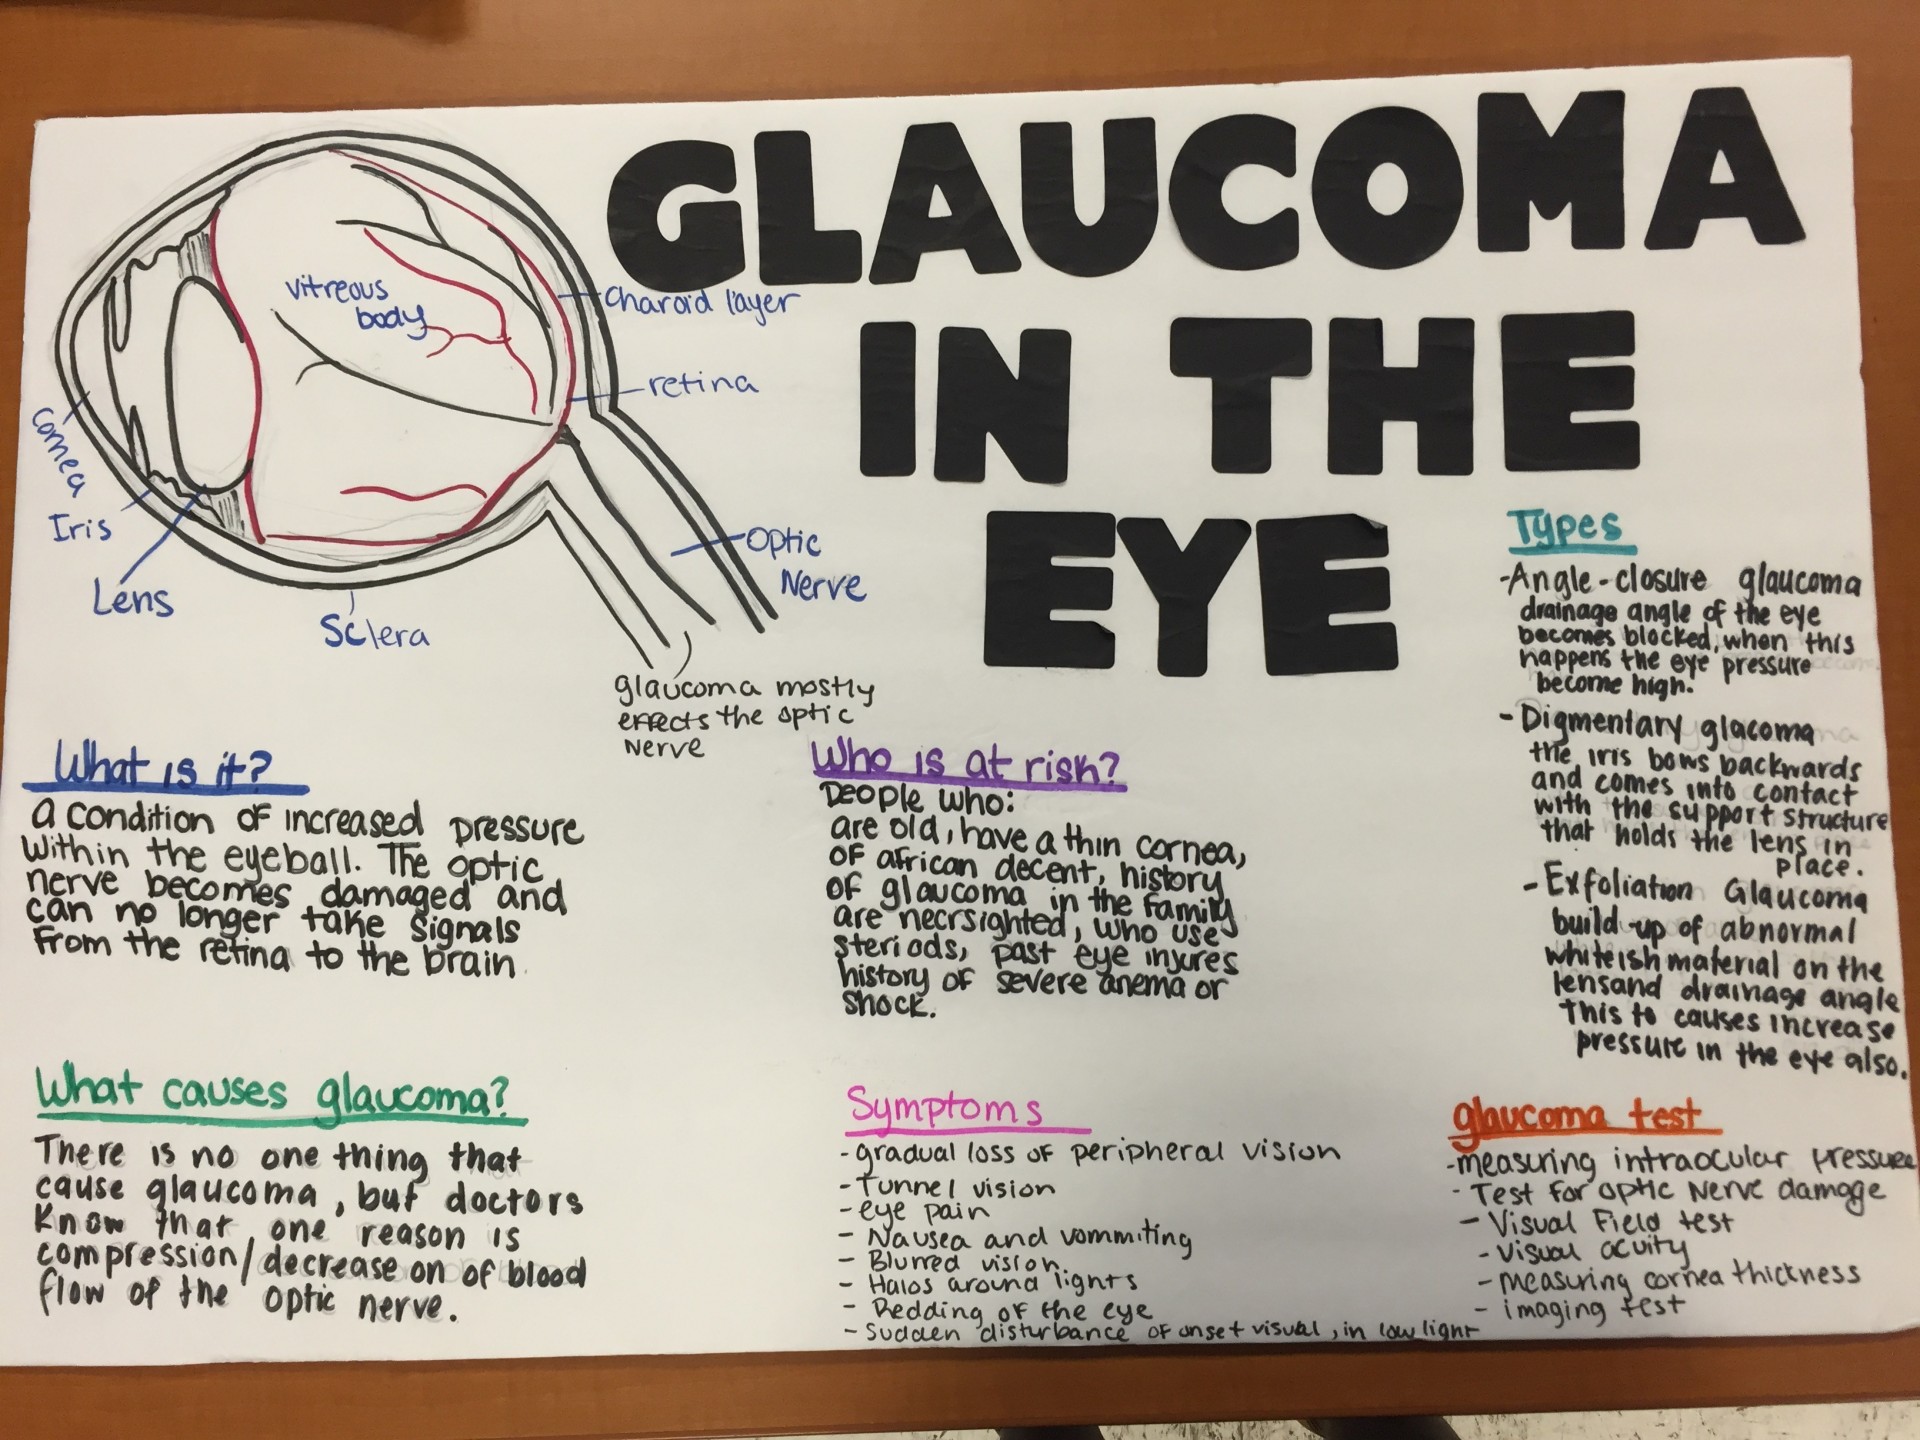 GLAUCOMA
IN THE
EYE
vitreous
body
charoid layer
retina
cornea
Iris
Lens
Sclera
Optic
Nerve
glaucoma mostly
effects the optic
nerve
What is it?
a condition of increased pressure
within the eyeball. The optic
nerve becomes damaged and
can no longer take signals
from the retina to the brain
What causes glaucoma?
There is no one thing that
cause glaucoma, but doctors
know that one reason is
compression/decrease on of blood
flow of the optic nerve.
Who is at risk?
People who:
are old, have a thin cornea,
of african decent, history
of glaucoma in the family
are necrsighted, who use
steriods, past eye injures
history of severe anema or
shock.
Symptoms
-gradual loss of peripheral vision
-tunnel vision
-eye pain
- Nausea and vommiting
- Blurred vision
- Halos around lights
- Redding of the eye
- Sudden disturbance of onset visual, in low light
Types
-Angle-closure glaucoma
drainage angle of the eye
becomes blocked, when this
happens the eye pressure
become high.
- Pigmentary glacoma
the iris bows backwards
and comes into contact
with the support structure
that holds the lens in
place.
- Exfoliation Glaucoma
build-up of abnormal
whiteish material on the
lensand drainage angle
this to causes increase
pressure in the eye also.
glaucoma test
-measuring intraocular pressure
- Test for optic nerve damage
- Visual Field test
- Visual acuity
- measuring cornea thickness
- imaging test